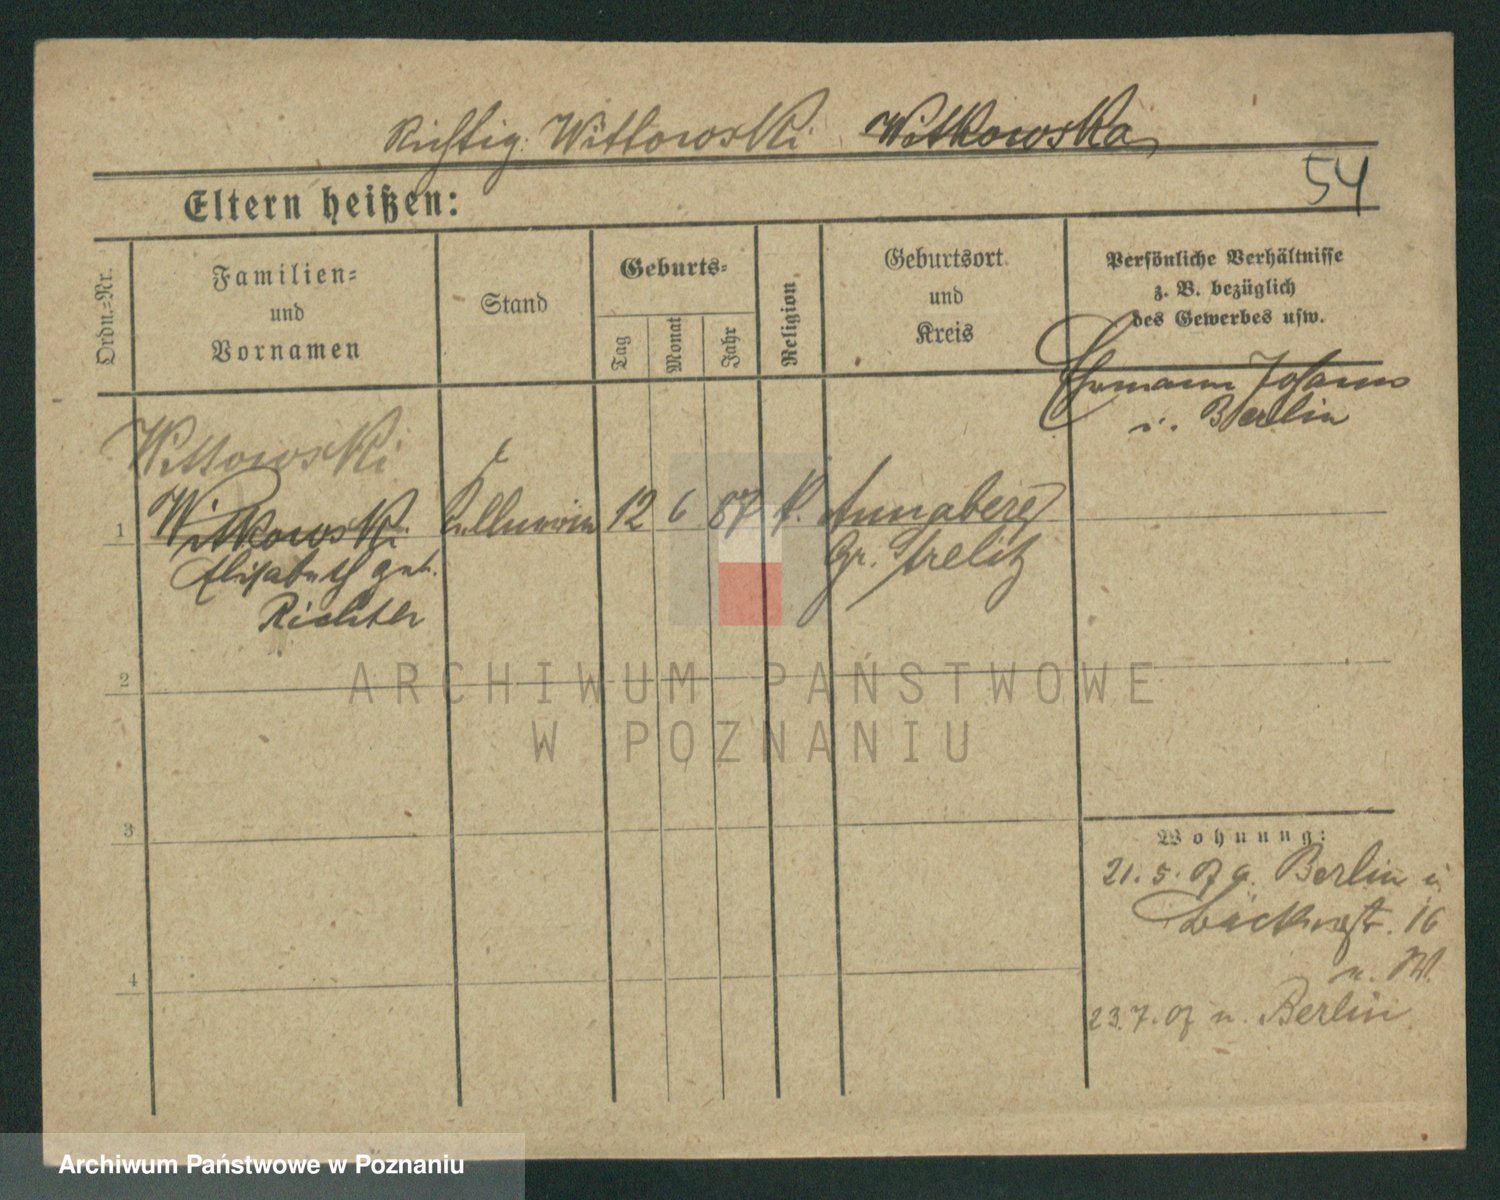 Richtig: Wittowski Witkowska
54
Eltern heißen:
Ordn.=Nr.
Familien=
und
Vornamen
Stand
Geburts=
Tag
Monat
Jahr
Religion
Geburtsort
und
Kreis
Persönliche Verhältnisse
z. B. bezüglich
des Gewerbes usw.
Ehemann Johanns
i. Berlin
Wittowski
1 Witkowski Kellnerin 12 6 87 k. Annaberg
Elisabeth geb. Gr. Strelitz
Richter
2
ARCHIWUM PAŃSTWOWE
W POZNANIU
3
Wohnung:
21. 5. 07 a. Berlin
Bäckerstr. 16
4
23. 7. 07 n. Berlin
Archiwum Państwowe w Poznaniu